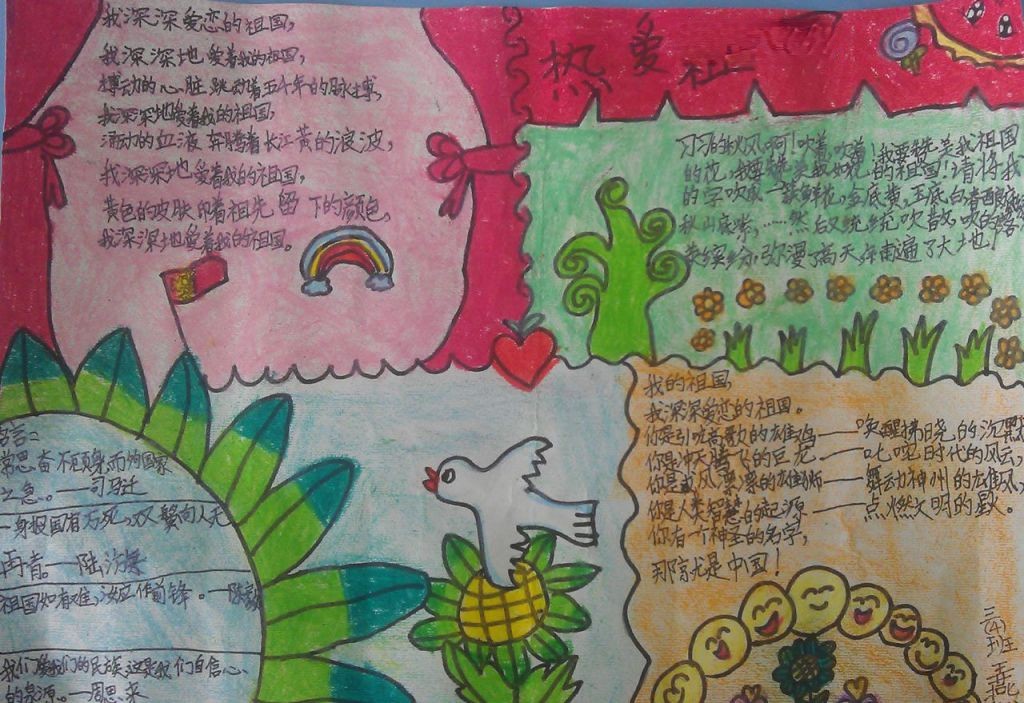 热爱祖
我深深爱恋的祖国,
我深深地爱着我的祖国,
搏动的心脏跳动着五千年的脉搏,
我深深地爱着我的祖国,
涌动的血液奔腾着长江黄的浪波,
我深深地爱着我的祖国,
黄色的皮肤印着祖先留下的颜色,
我深深地爱着我的祖国。
习习的秋风啊!吹着,吹着!我要赞美我祖国
的花,我要赞美我如花的祖国!请将我
的字吹成一簇鲜花,金底黄,玉底白,春酿底绿,
秋山底紫,……然后又统统吹散,吹的落
英缤纷,弥漫了高天,铺遍了大地!
名言:
常思奋不顾身,而殉国家
之急。——司马迁
一身报国有万死,双鬓向人无
再青。——陆游
祖国如有难,汝应作前锋。——陈毅
我们爱我们的民族,这是我们自信心
的泉源。——周恩来
我的祖国,
我深深爱恋的祖国。
你是引吭高歌的雄鸡——唤醒拂晓的沉默,
你是冲天腾飞的巨龙——叱咤时代的风云,
你是威风凛凛的雄狮——舞动神州的雄风,
你是人类智慧的起源——点燃文明的星火。
你有一个神圣的名字,
那就是中国!
三(4)班